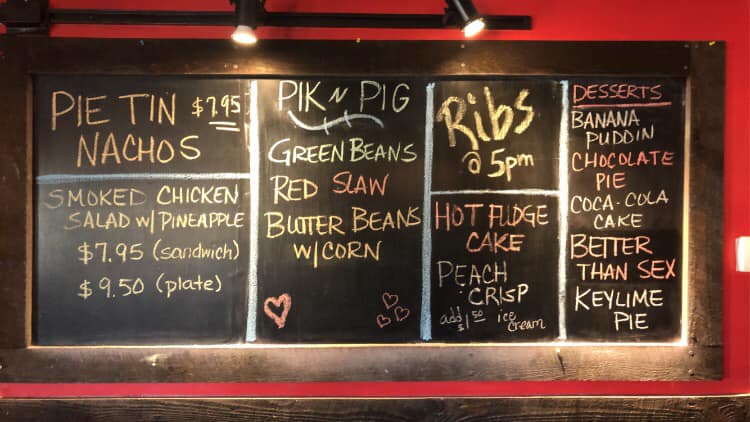 PIE TIN $7.95
NACHOS
SMOKED CHICKEN
SALAD W/ PINEAPPLE
$7.95 (sandwich)
$9.50 (plate)
PIK N PIG
GREEN BEANS
RED SLAW
BUTTER BEANS
W/CORN
Ribs
@ 5pm
HOT FUDGE
CAKE
PEACH
CRISP
add $1.50 ice cream
DESSERTS
BANANA
PUDDIN
CHOCOLATE
PIE
COCA-COLA
CAKE
BETTER
THAN SEX
KEYLIME
PIE